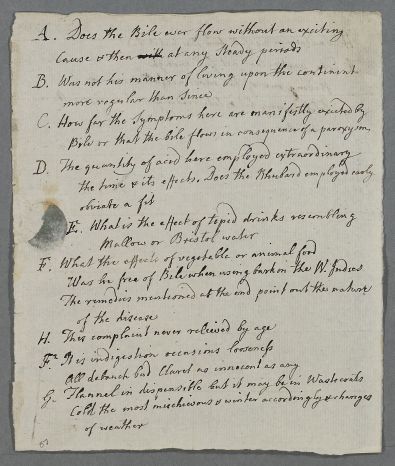 A. Does the Bile ever flow without an exciting
Cause & then at any steady periods
B. Was not his manner of living upon the continent
more regular than Since
C. How far the Symptoms here are manifestly excited by
Bile or that the bile flows in consequence of a paroxysm.
D. The quantity of acid here employed extraordinary
the time & its effects. Does the Rhubarb employed early
obviate a fit
E. What is the effect of tepid drinks resembling
Mallow or Bristol water
F. What the effects of vegetable or animal food
Was he free of Bile when using bark in the W. Indies
The remedies mentioned at the end point out the nature
of the disease
H. This complaint never relieved by age
F. It is indigestion occasions looseness
All debauch bad Claret as innocent as any
G. Flannel indispensible but it may be in Wastcoats
Cold the most mischievous & winter accordingly & changes
of weather